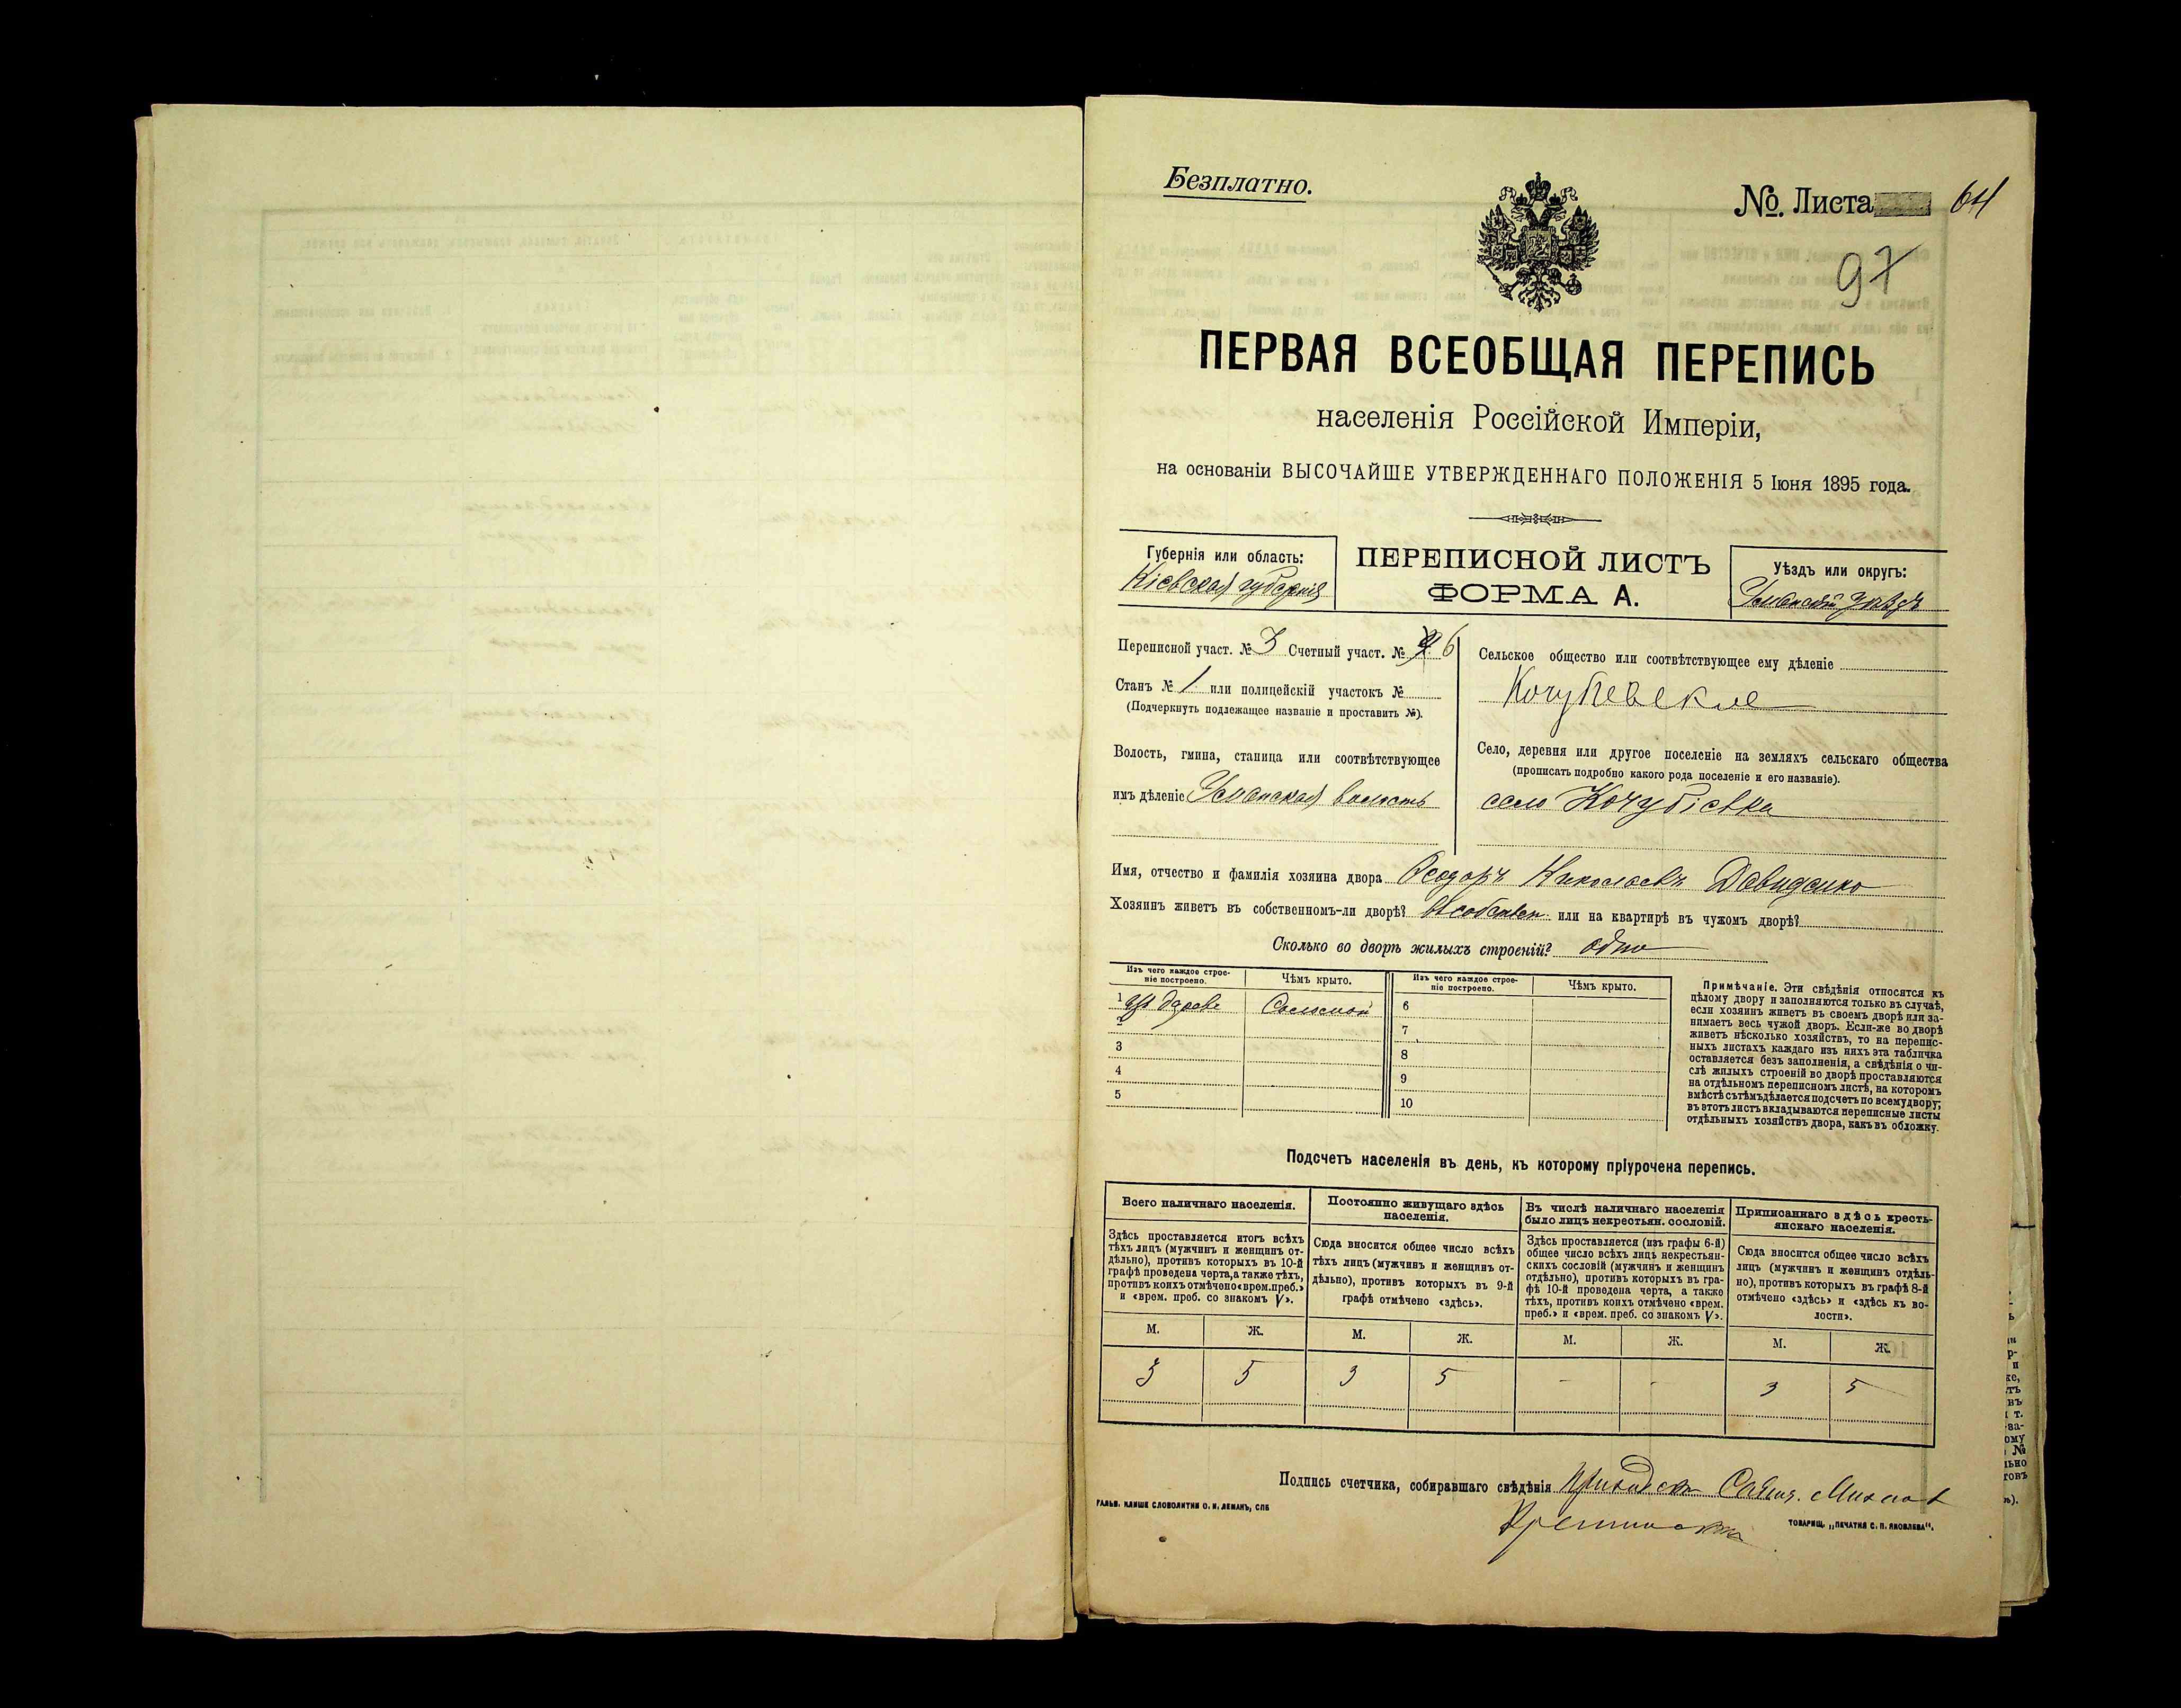 Безплатно.
№ Листа 64
97
ПЕРВАЯ ВСЕОБЩАЯ ПЕРЕПИСЬ
населенія Россійской Имперіи,
на основаніи ВЫСОЧАЙШЕ УТВЕРЖДЕННАГО ПОЛОЖЕНІЯ 5 Іюня 1895 года.
Губернія или область:
Кіевская губернія
ПЕРЕПИСНОЙ ЛИСТЪ
ФОРМА А.
Уѣздъ или округъ:
Уманскій уѣздъ
Переписной участ. № 3 Счетный участ. № 6
Станъ № 1 или полицейскій участокъ №
(Подчеркнуть подлежащее названіе и проставить №).
Волость, гмина, станица или соотвѣтствующее
имъ дѣленіе Уманская волость
Сельское общество или соотвѣтствующее ему дѣленіе
Кочубеевское
Село, деревня или другое поселеніе на земляхъ сельскаго общества
(прописать подробно какого рода поселеніе и его названіе).
село Кочубіевка
Имя, отчество и фамилія хозяина двора Ѳеодоръ Николаевъ Давиденко
Хозяинъ живетъ въ собственномъ-ли дворѣ? въ собствен. или на квартирѣ въ чужомъ дворѣ?
Сколько во дворѣ жилыхъ строеній? одно
Изъ чего каждое строе-
ніе построено.
Чѣмъ крыто.
Изъ чего каждое строе-
ніе построено.
Чѣмъ крыто.
1 изъ дерева Соломой 6
2 7
3 8
4 9
5 10
Примѣчаніе. Эти свѣдѣнія относятся къ
цѣлому двору и заполняются только въ случаѣ,
если хозяинъ живетъ въ своемъ дворѣ или за-
нимаетъ весь чужой дворъ. Если-же во дворѣ
живетъ нѣсколько хозяйствъ, то на перепис-
ныхъ листахъ каждаго изъ нихъ эта табличка
оставляется безъ заполненія, а свѣдѣнія о чи-
слѣ жилыхъ строеній во дворѣ проставляются
на отдѣльномъ переписномъ листѣ, на которомъ
вмѣстѣ съ тѣмъ дѣлается подсчетъ по всему двору;
въ этотъ листъ вкладываются переписные листы
отдѣльныхъ хозяйствъ двора, какъ въ обложку.
Подсчетъ населенія въ день, къ которому пріурочена перепись.
Всего наличнаго населенія.
Здѣсь проставляется итогъ всѣхъ
тѣхъ лицъ (мужчинъ и женщинъ от-
дѣльно), противъ которыхъ въ 10-й
графѣ проведена черта, а также тѣхъ,
противъ коихъ отмѣчено «врем. преб.»
и «врем. преб. со знакомъ V».
Постоянно живущаго здѣсь
населенія.
Сюда вносится общее число всѣхъ
тѣхъ лицъ (мужчинъ и женщинъ от-
дѣльно), противъ которыхъ въ 9-й
графѣ отмѣчено «здѣсь».
Въ числѣ наличнаго населенія
было лицъ некрестьян. сословій.
Здѣсь проставляется (изъ графы 6-й)
общее число всѣхъ лицъ некрестьян-
скихъ сословій (мужчинъ и женщинъ
отдѣльно), противъ которыхъ въ гра-
фѣ 10-й проведена черта, а также
тѣхъ, противъ коихъ отмѣчено «врем.
преб.» и «врем. преб. со знакомъ V».
Приписаннаго здѣсь кресть-
янскаго населенія.
Сюда вносится общее число всѣхъ
лицъ (мужчинъ и женщинъ отдѣль-
но), противъ которыхъ въ графѣ 8-й
отмѣчено «здѣсь» и «здѣсь въ во-
лости».
М. Ж. М. Ж. М. Ж. М. Ж.
3 5 3 5 - - 3 5
Подпись счетчика, собиравшаго свѣдѣнія
ГАЛЬВ. КЛИШЕ СЛОВОЛИТНИ О. И. ЛЕМАНЪ, СПБ
ТОВАРИЩ. „ПЕЧАТНЯ С. П. ЯКОВЛЕВА“.